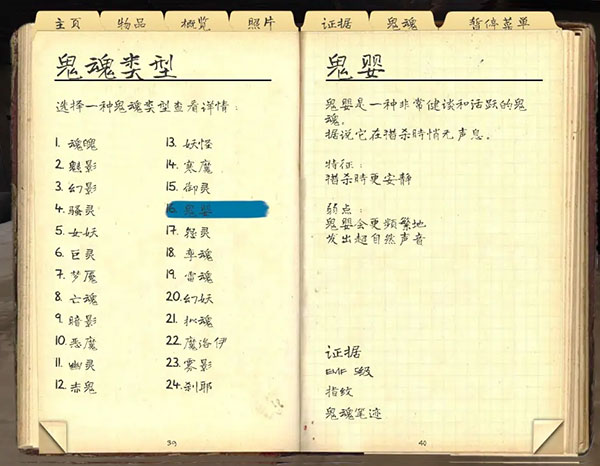 主页 物品 概览 照片 证据 鬼魂 暂停菜单
鬼魂类型
选择一种鬼魂类型查看详情：
1. 魂魄
2. 魅影
3. 幻影
4. 骚灵
5. 女妖
6. 巨灵
7. 梦魇
8. 亡魂
9. 暗影
10. 恶魔
11. 幽灵
12. 赤鬼
13. 妖怪
14. 寒魔
15. 御灵
16. 鬼婴
17. 怨灵
18. 孪魂
19. 雷魂
20. 幻妖
21. 拟魂
22. 魔洛伊
23. 雾影
24. 刹耶
39
鬼婴
鬼婴是一种非常健谈和活跃的鬼
魂。
据说它在猎杀時悄无声息。
特征：
猎杀時更安静
弱点：
鬼婴会更频繁地
发出超自然声音
证据
EMF 5级
指纹
鬼魂笔迹
40